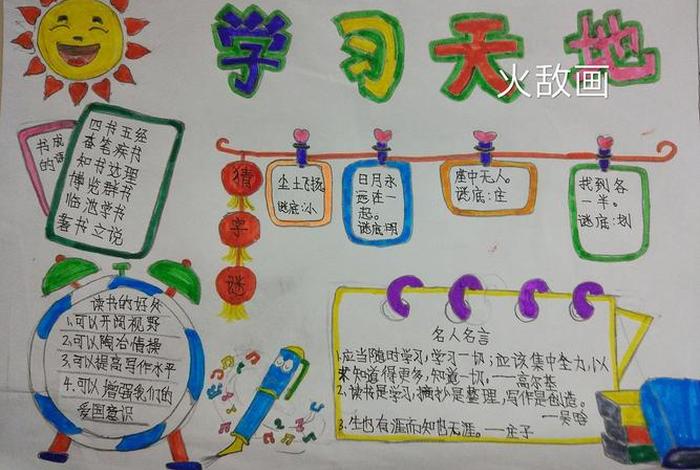 学习天地
火敌画
书成
的语
四书五经
奋笔疾书
知书达理
博览群书
临池学书
著书立说
猜字谜
尘土飞扬。
谜底:小
日月永
远在一
起。
谜底:明
座中无人。
谜底:庄
找到各
一半。
谜底:划
读书的好处
1.可以开阔视野
2.可以陶冶情操
3.可以提高写作水平
4.可以增强我们的
爱国意识
名人名言
1.应当随时学习,学习一切;应该集中全力,以
求知道得更多,知道一切。——高尔基
2.读书是学习,摘抄是整理,写作是创造。
——吴晗
3.生也有涯而知也无涯。——庄子